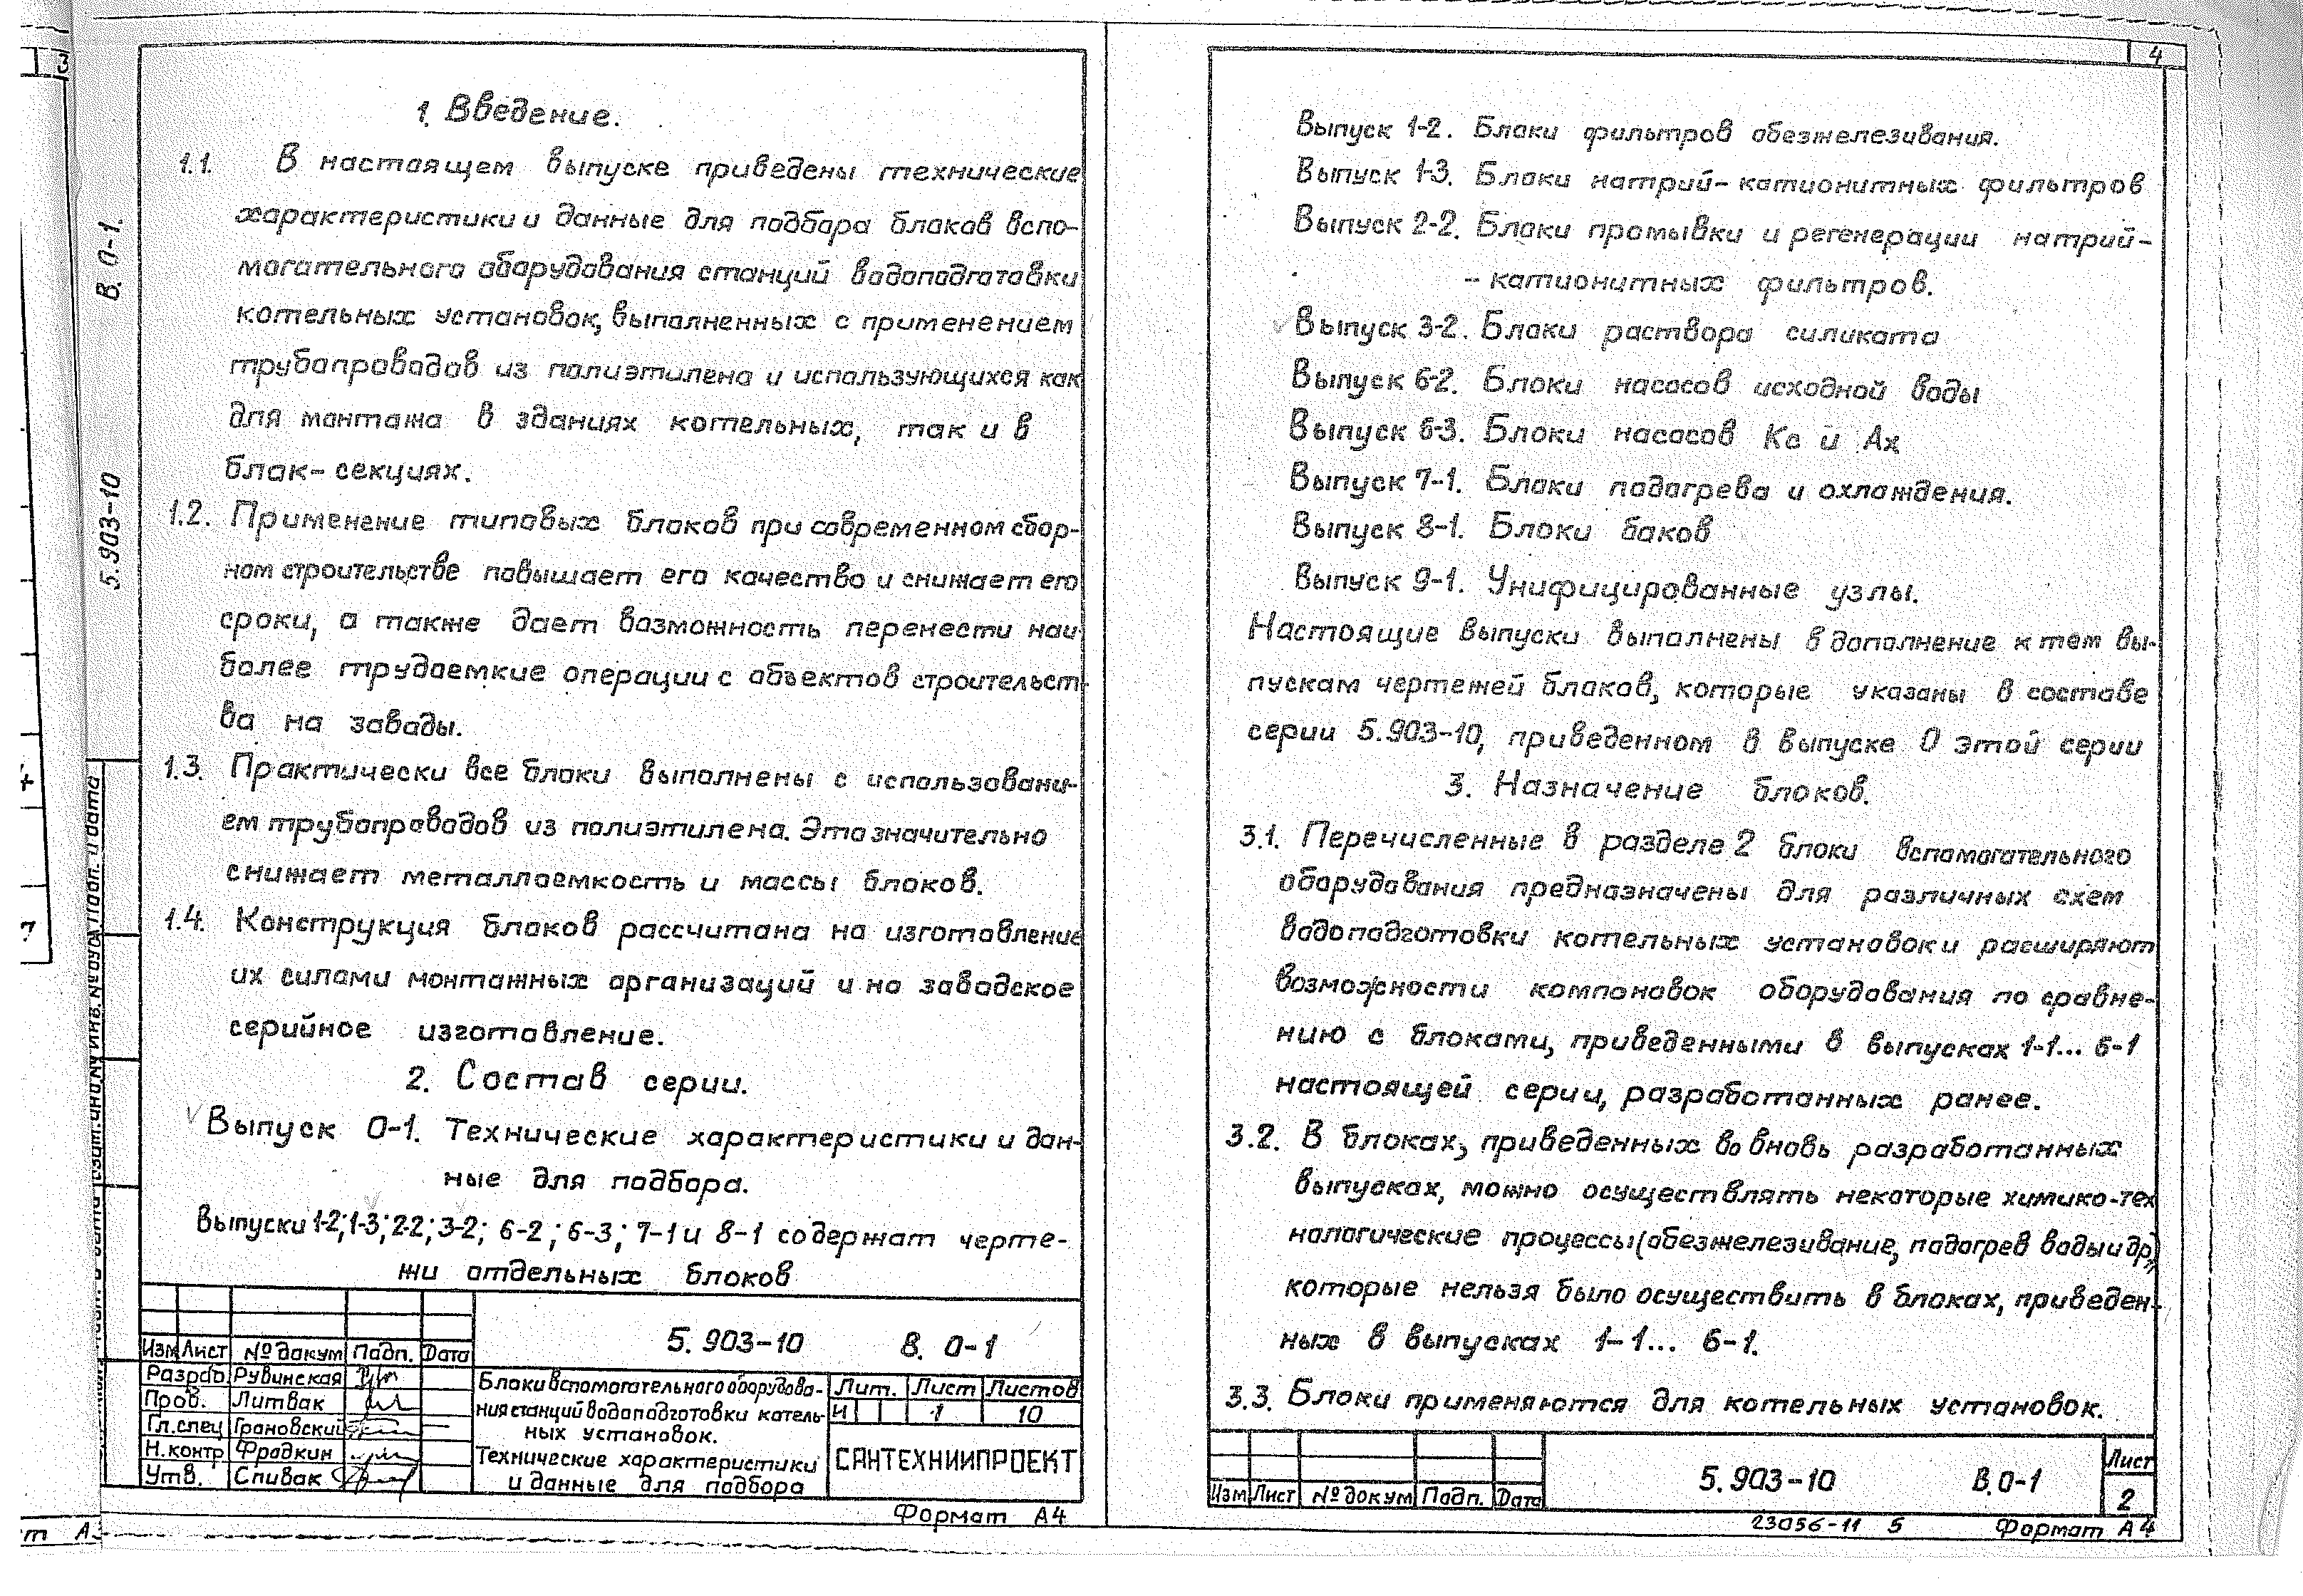 3
В. 0-1.
5.903-10
1. Введение.
1.1. В настоящем выпуске приведены технические
характеристики и данные для подбора блоков вспо-
могательного оборудования станций водоподготовки
котельных установок, выполненных с применением
трубопроводов из полиэтилена и использующихся как
для монтажа в зданиях котельных, так и в
блок-секциях.
1.2. Применение типовых блоков при современном сбор-
ном строительстве повышает его качество и снижает его
сроки, а также дает возможность перенести наи-
более трудоемкие операции с объектов строительст-
ва на заводы.
1.3. Практически все блоки выполнены с использовани-
ем трубопроводов из полиэтилена. Это значительно
снижает металлоемкость и массы блоков.
1.4. Конструкция блоков рассчитана на изготовление
их силами монтажных организаций и на заводское
серийное изготовление.
2. Состав серии.
Выпуск 0-1. Технические характеристики и дан-
ные для подбора.
Выпуски 1-2; 1-3; 2-2; 3-2; 6-2; 6-3; 7-1 и 8-1 содержат черте-
жи отдельных блоков
5.903-10 В. 0-1
Изм Лист № докум Подп. Дата
Разраб. Рувинская
Пров. Литвак
Гл.спец Грановский
Н.контр Фрадкин
Утв. Спивак
Блоки вспомогательного оборудова-
ния станций водоподготовки котель-
ных установок.
Технические характеристики
и данные для подбора
Лит. Лист Листов
И 1 10
САНТЕХНИИПРОЕКТ
Формат А4
4
Выпуск 1-2. Блоки фильтров обезжелезивания.
Выпуск 1-3. Блоки натрий-катионитных фильтров
Выпуск 2-2. Блоки промывки и регенерации натрий-
-катионитных фильтров.
Выпуск 3-2. Блоки раствора силиката
Выпуск 6-2. Блоки насосов исходной воды
Выпуск 6-3. Блоки насосов Кс и Ах
Выпуск 7-1. Блоки подогрева и охлаждения.
Выпуск 8-1. Блоки баков
Выпуск 9-1. Унифицированные узлы.
Настоящие выпуски выполнены в дополнение к тем вы-
пускам чертежей блоков, которые указаны в составе
серии 5.903-10, приведенном в выпуске 0 этой серии
3. Назначение блоков.
3.1. Перечисленные в разделе 2 блоки вспомогательного
оборудования предназначены для различных схем
водоподготовки котельных установок и расширяют
возможности компоновок оборудования по сравне-
нию с блоками, приведенными в выпусках 1-1... 6-1
настоящей серии, разработанных ранее.
3.2. В блоках, приведенных во вновь разработанных
выпусках, можно осуществлять некоторые химико-тех
нологические процессы (обезжелезивание, подогрев воды и др.),
которые нельзя было осуществить в блоках, приведен-
ных в выпусках 1-1... 6-1.
3.3. Блоки применяются для котельных установок.
Изм Лист № докум Подп. Дата
5.903-10 В.0-1
Лист
2
23056-11 5 Формат А4